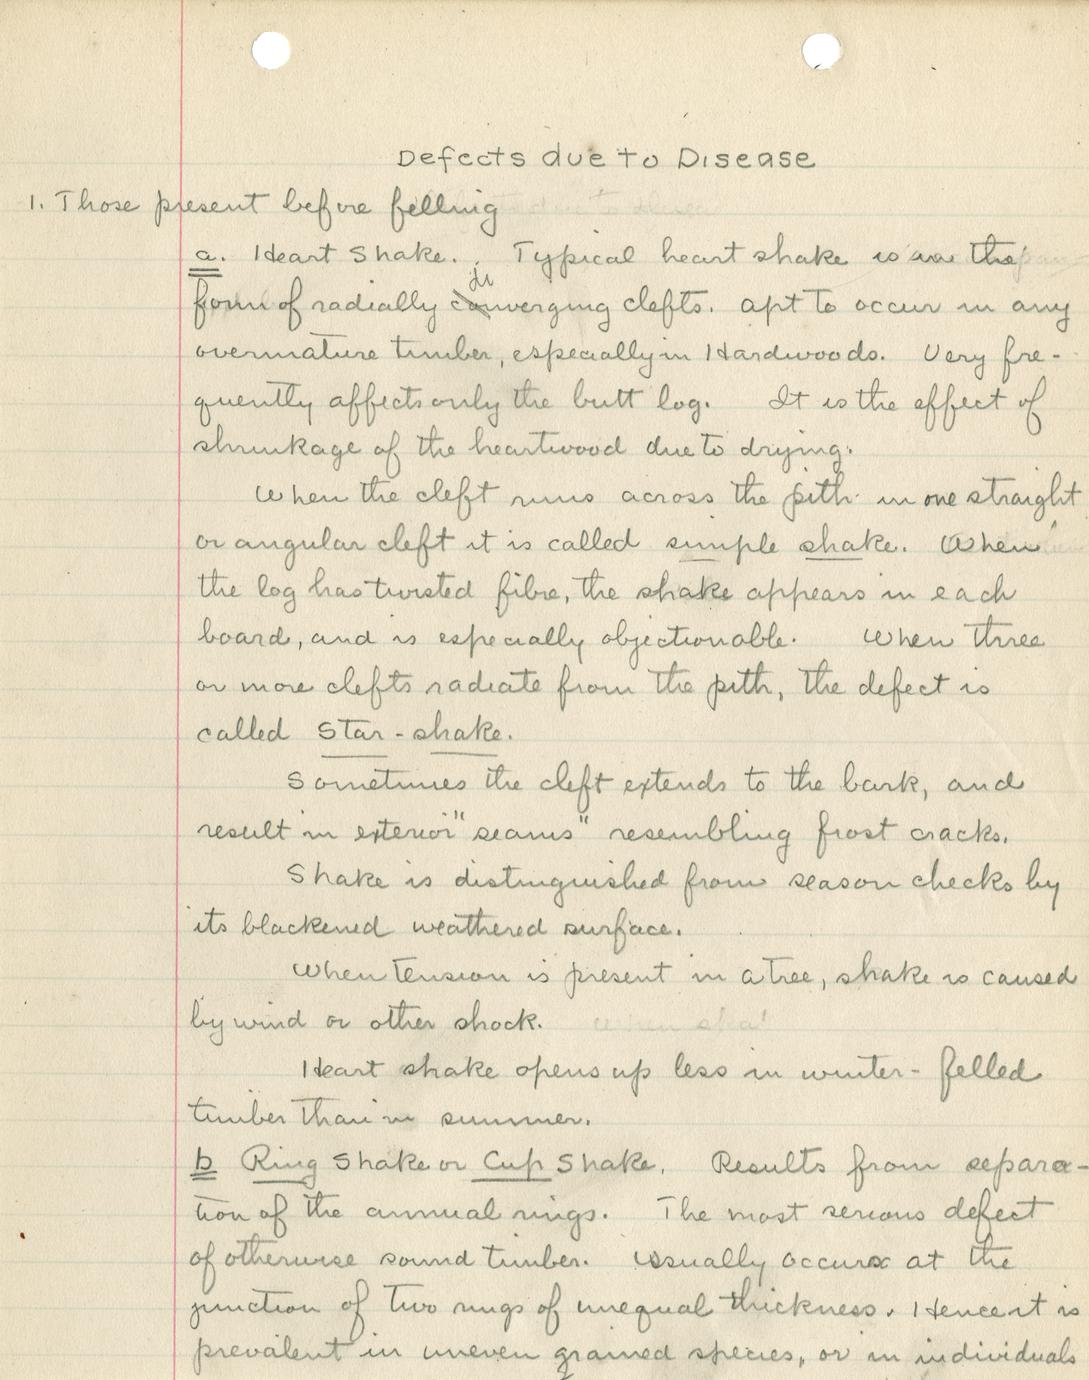 Defects due to Disease
1. Those present before felling
a. Heart Shake. Typical heart shake is in the
form of radially diverging clefts. apt to occur in any
overmature timber, especially in Hardwoods. Very fre-
quently affects only the butt log. It is the effect of
shrinkage of the heartwood due to drying.
When the cleft runs across the pith in one straight
or angular cleft it is called simple shake. When
the log has twisted fibre, the shake appears in each
board, and is especially objectionable. When three
or more clefts radiate from the pith, the defect is
called Star-shake.
Sometimes the cleft extends to the bark, and
result in exterior "seams" resembling frost cracks.
Shake is distinguished from season checks by
its blackened weathered surface.
When tension is present in a tree, shake is caused
by wind or other shock.
Heart shake opens up less in winter-felled
timber than in summer.
b Ring Shake or Cup Shake. Results from separa-
tion of the annual rings. The most serious defect
of otherwise sound timber. Usually occurs at the
junction of two rings of unequal thickness. Hence it is
prevalent in uneven grained species, or in individuals